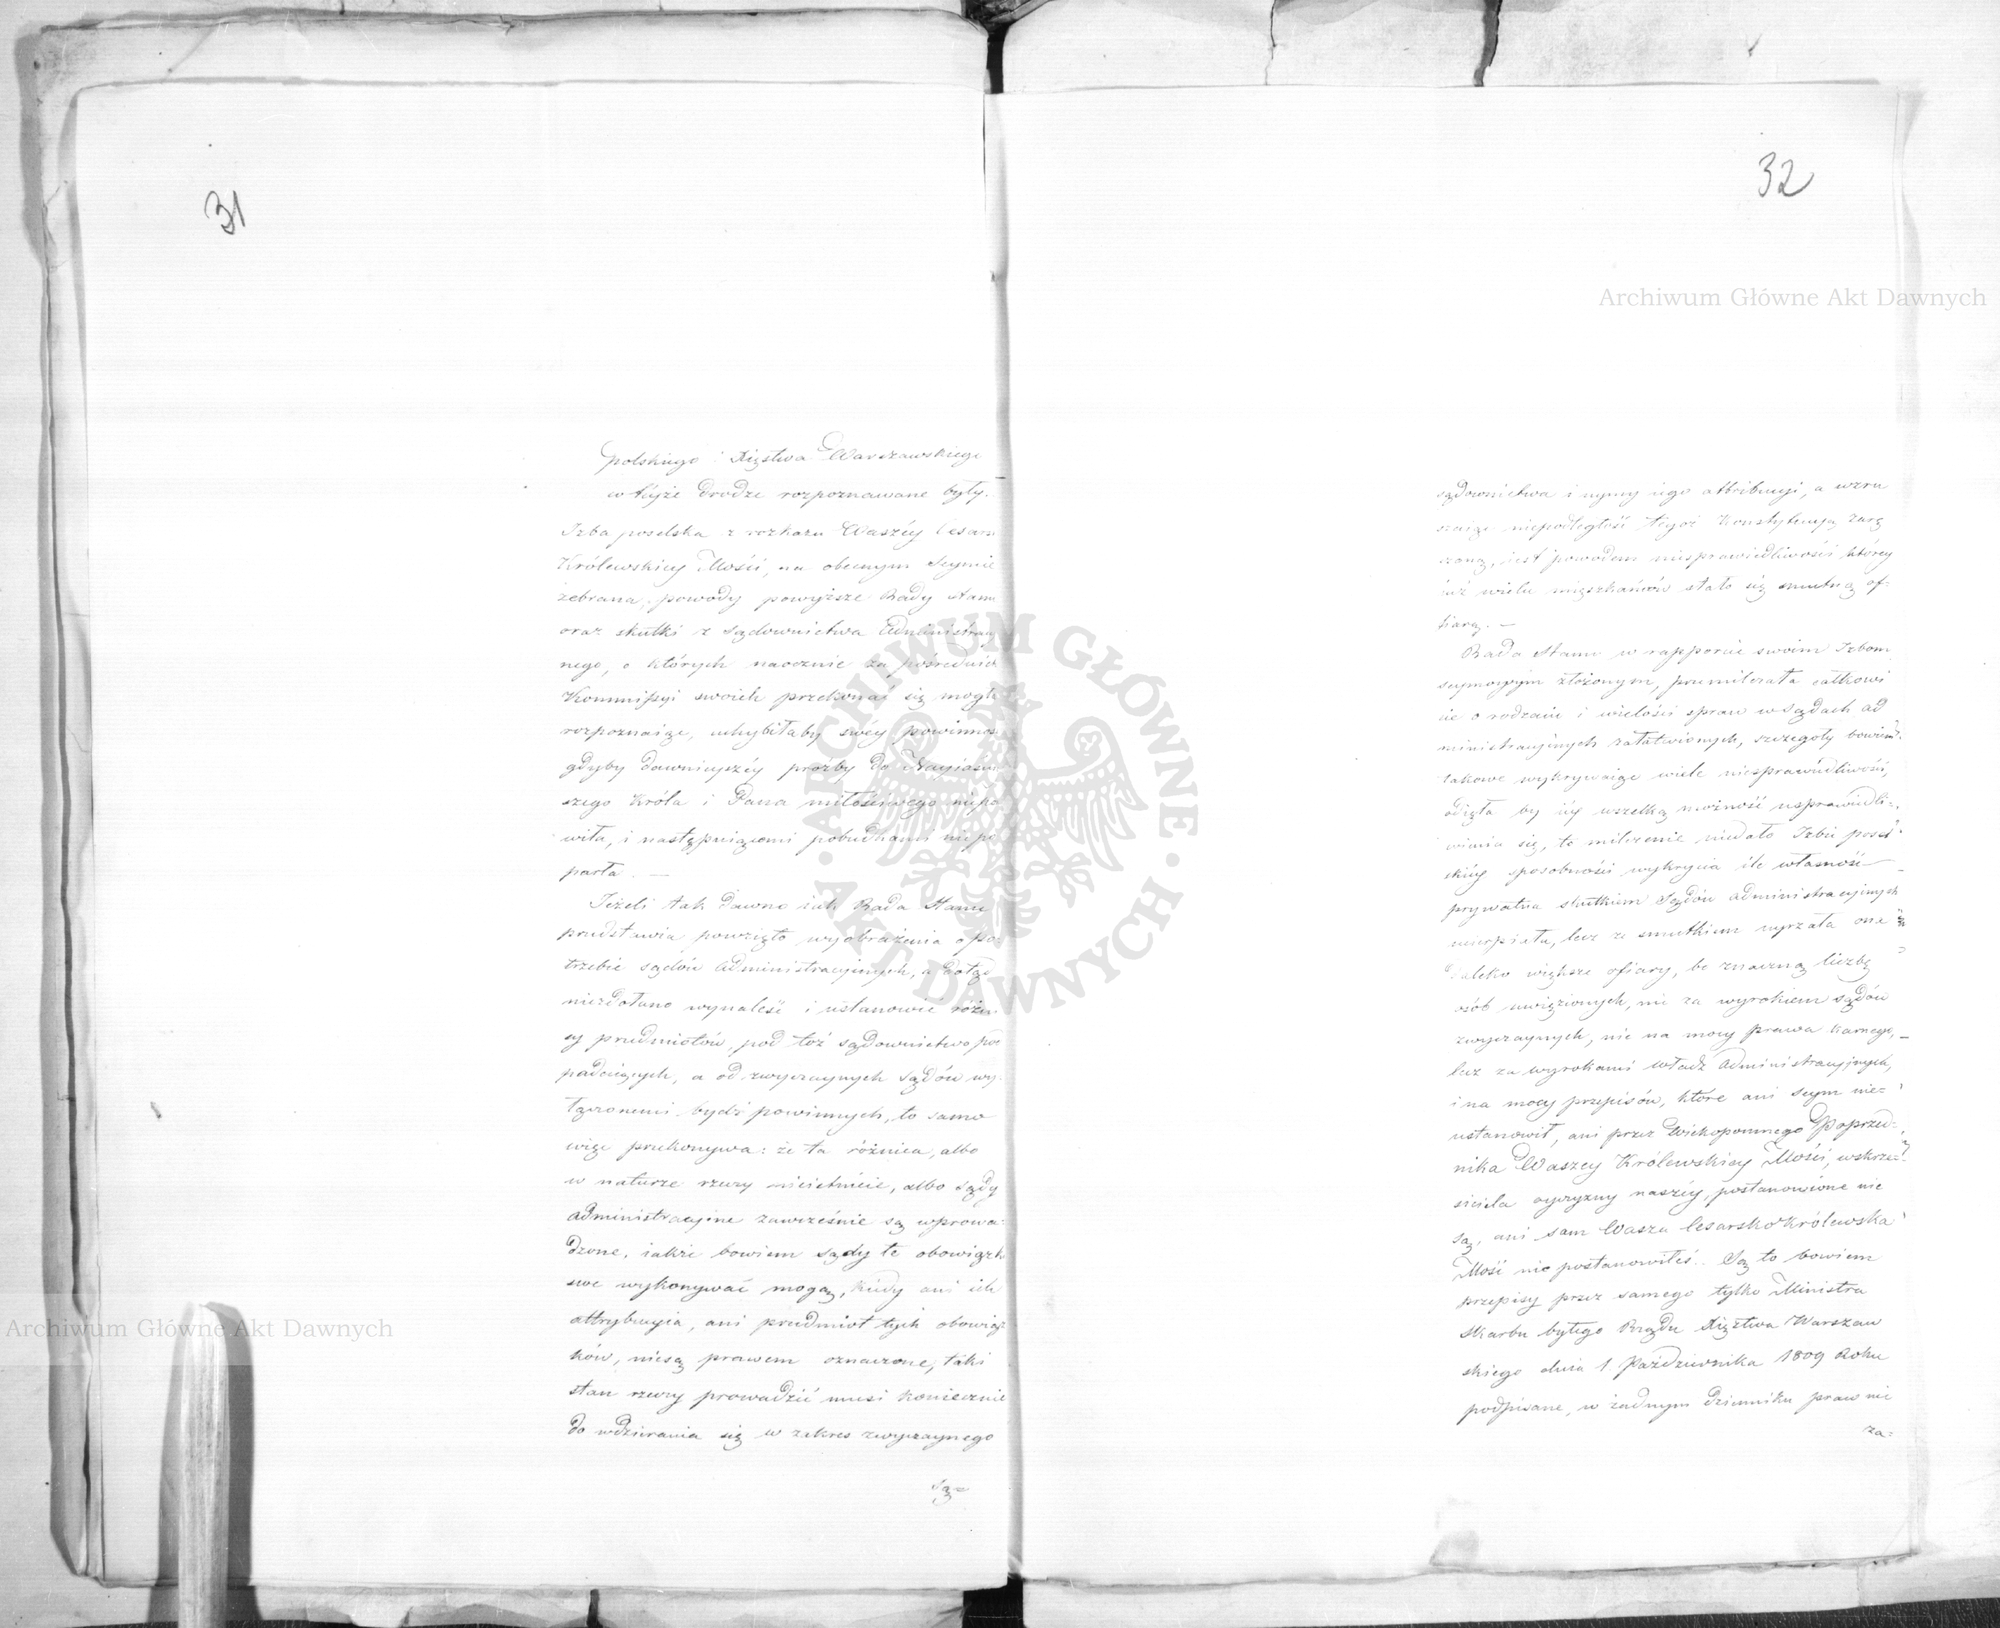 31
polskiego i Xięstwa Warszawskiego
w téyże drodze rozpoznawane były.
Izba poselska z rozkazu Waszéy Cesars
Królewskiey Mości, na obecnym Seymie
zebrana, powody powyższe Rady Stanu
oraz skutki z sądownictwa Administracy
nego, o których naocznie za pośrednic
Kommissyi swoich przekonać się mogła
rozpoznaiąc, uchybiłaby swéy powinnos
gdyby dawnieyszéy prożby do Nayiaśni
szego Króla i Pana miłościwego niepo
wiła, i następuiącemi pobudkami niepo
parła. —
Jeżeli tak dawno iak Rada Stanu
przedstawia powzięto wyobrażenia o po-
trzebie sądów administracyjnych, a dotąd
niezdołano wynaleść i ustanowić różni
cy przedmiotów, pod toż sądownictwo pod
padaiących, a od zwyczaynych Sądów wy-
łączonemi bydź powinnych, to samo
więc przekonywa: że ta różnica, albo
w naturze rzeczy nieistnieie, albo sądy
administracyjne zawcześnie są wprowa-
dzone, iakże bowiem sądy te obowiązki
swe wykonywać mogą, kiedy ani ich
attrybucyia, ani przedmiot tych obowiąz-
ków, niesą prawem oznaczone, taki
stan rzeczy prowadzić musi koniecznie
do wdzierania się w zakres zwyczaynego
są=
32
sądownictwa i uymy iego attribucyi, a wzru
szaiąc niepodległość tegoż Konstytucyą zarę
czoną, iest powodem niesprawiedliwości któréy
iuż wielu mieszkańców stało się smutną of-
fiarą. —
Rada Stanu w rapporcie swoim Izbom
seymowym złożonym, przemilczała całkowi
cie o rodzaiu i wielości spraw w Sądach ad
ministracyjnych załatwionych, szczegoły bowiem
takowe wykrywaiąc wiele niesprawiedliwości,
odięła by iéy wszelką możność usprawiedli-
wienia się, to milczenie niedało Izbie posel
skiéy sposobności wykrycia ile własność
prywatna skutkiem Sądów administracyjnych
ucierpiała, lecz ze smutkiem uyrzała ona
daleko większe ofiary, bo znaczną liczbę
osób uwięzionych, nie za wyrokiem sądów
zwyczaynych, nie na mocy prawa karnego,
lecz za wyrokami władz administracyjnych,
i na mocy przepisów, które ani Seym nie-
ustanowił, ani przez Wiekopomnego Poprzed-
nika Waszey Królewskiey Mości, wskrze-
siciela oyczyzny naszéy, postanowione nie
są, ani sam Wasza Cesarsko Królewska
Mość nie postanowiłeś. Są to bowiem
przepisy przez samego tylko Ministra
Skarbu byłego Rządu Xięztwa Warszaw
skiego dnia 1 Października 1809 Roku
podpisane, w żadnym dzienniku praw nie
za=
Archiwum Główne Akt Dawnych
Archiwum Główne Akt Dawnych
ARCHIWUM GŁÓWNE · AKT DAWNYCH ·